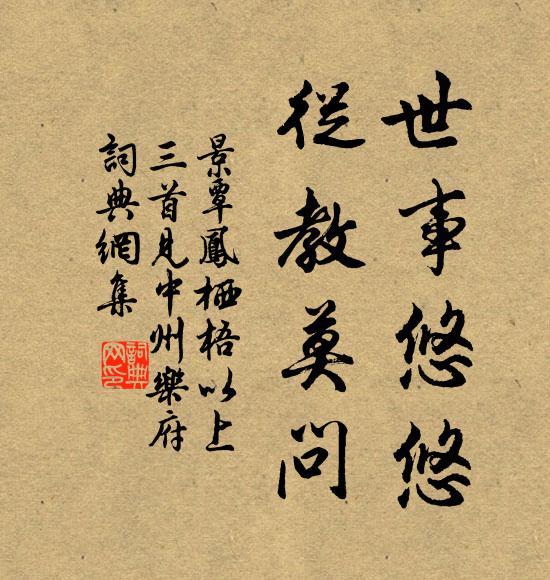 世事悠悠
從教莫問
景覃鳳栖梧以上
三首見中州樂府
詞典網集
詞典網印